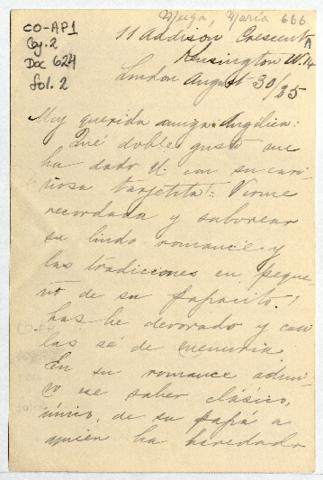 Meiga, María 666
CO-AP1
Cg-2
Doc 624
fol. 2
A
11 Addison Crescent
Kensington W. 14
London August 30/25
Muy querida amiga Angélica:
Qué doble gusto me
ha dado U. con su cari-
ñosa tarjetita! Verme
recordada y saborear
su lindo romance y
las tradiciones en peque-
ño de su papacito!
Las he devorado y casi
las sé de memoria
En su romance admi-
ro ese saber clásico,
único, de su papá a
quien ha heredado